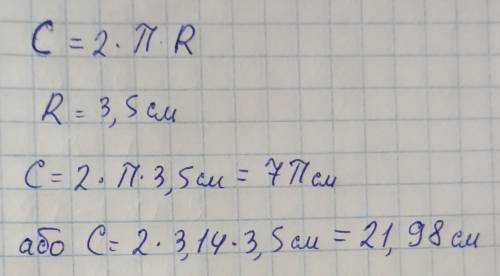 C = 2 · П · R
R = 3,5 см
C = 2 · П · 3,5 см = 7П см
або C = 2 · 3,14 · 3,5 см = 21,98 см